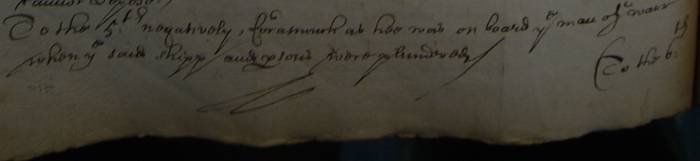 To the 5th negatively, foramuch as hee was on board ye man of warr
when ye said shipp and p̱sons were plundered
To the 6th